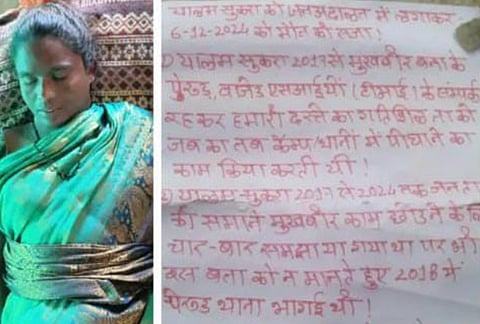 यालम सुकरा को जनअदालत में लगाकर
6-12-2024 को मौत की सजा!
1) यालम सुकरा 2017 से मुखबीर बता के
पुरुड़, वाजेड एसआईयों (टीआई) के संम्पर्क
रह कर हमारी दस्ते का गतिविधि ता की
जब का तब कैम्प/थानों में पौचाने का
काम किया करती थी!
2) यालम सुकरा 2017 से 2024 तक जनता
की समाले मुखबीर काम छोड़ने के लि
चार-बार समझाया गया था पर भी
बात को न मानते हुए 2018 में
पेरुड थाना भागई थी!